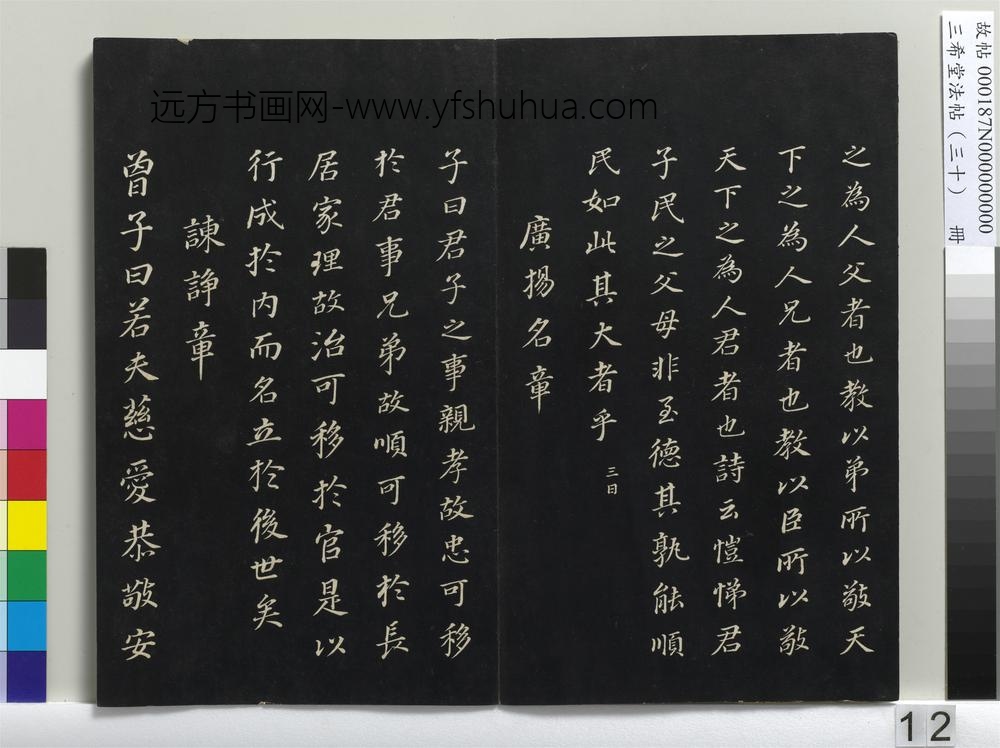 之為人父者也教以弟所以敬天
下之為人兄者也教以臣所以敬
天下之為人君者也詩云愷悌君
子民之父母非至德其孰能順
民如此其大者乎 三日
廣揚名章
子曰君子之事親孝故忠可移
於君事兄弟故順可移於長
居家理故治可移於官是以
行成於內而名立於後世矣
諫諍章
曾子曰若夫慈愛恭敬安
远方书画网-www.yfshuhua.com
故帖 000187N000000000
三希堂法帖（三十） 冊
12